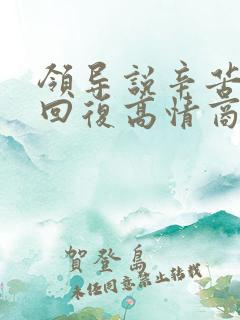 領导説辛苦
回復高情商
賀登島
未任同意禁止转载